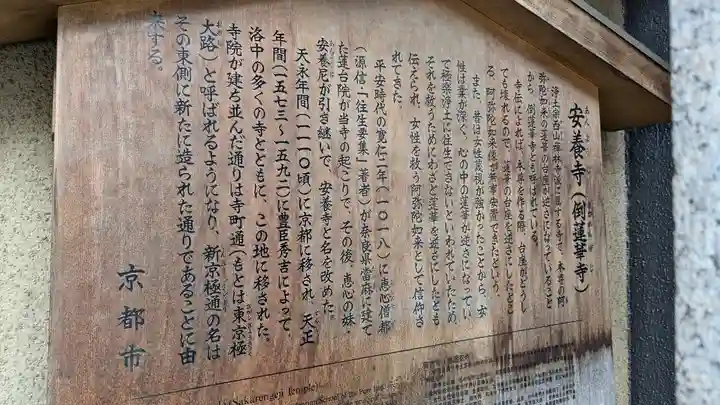 安養寺（倒蓮華寺）
浄土宗西山禅林寺派に属する寺で、本尊の阿
弥陀如来の蓮華の台座が逆さになっていること
から、倒蓮華寺とも呼ばれている。
寺伝によれば、本尊を作る際、台座がどうし
ても壊れるので、蓮華の台座を逆さにしたとこ
ろ、阿弥陀如来像が無事安置できたという。
また、昔は女性蔑視が強かったことから、女
性は業が深く、心の中の蓮華が逆さになってい
て極楽浄土に往生できないといわれていたため、
それを救うためにわざと蓮華を逆さにしたとも
伝えられ、女性を救う阿弥陀如来として信仰さ
れてきた。
平安時代の寛仁二年（一〇一八）に恵心僧都
（源信・「往生要集」著者）が奈良県當麻に建て
た蓮台院が当寺の起こりで、その後、恵心の妹・
安養尼が引き継いで、安養寺と名を改めた。
天永年間（一一一〇頃）に京都に移され、天正
年間（一五七三〜一五九二）に豊臣秀吉によって、
洛中の多くの寺とともに、この地に移された。
寺院が建ち並んだ通りは寺町通（もとは東京極
大路）と呼ばれるようになり、新京極通の名は
その東側に新たに造られた通りであることに由
来する。
京都市
(Sakarengeji Temple)